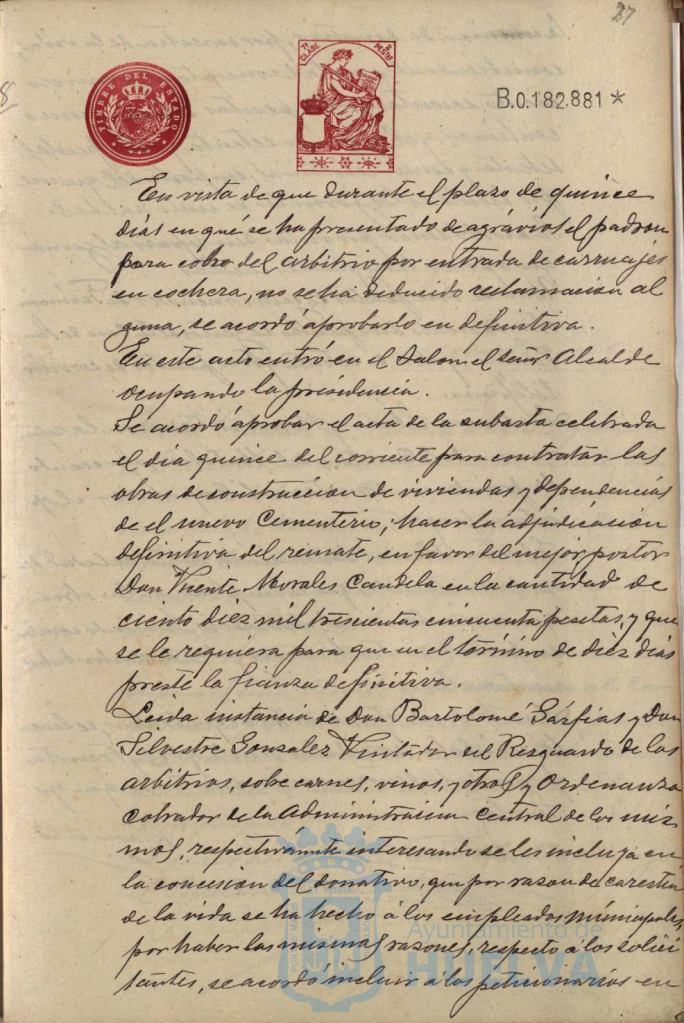 27
TIMBRE DEL ESTADO
7ª CLASE
2 PESTAS
B.0.182.881 *
8
En vista de que durante el plazo de quince
dias en qué se ha presentado de agrávios el padron
para cobro del arbitrio por entrada de carruajes
en cochera, no se ha deducido reclamacion al
guna, se acordó aprobarlo en definitiva.
En este acto entró en el Salon el señor Alcalde
ocupando la presidencia.
Se acordó aprobar el acta de la subasta celebrada
el dia quince del corriente para contratar las
obras de construccion de viviendas y dependencias
de el nuevo Cementerio; hacer la adjudicacion
definitiva del remate, en favor del mejor postor
Don Vicente Morales Candela en la cantidad de
ciento diez mil trescientas cincuenta pesetas, y que
se le requiera para que en el término de diez dias
preste la fianza definitiva.
Leida instancia de Don Bartolomé Gárfias y Don
Silvestre Gonzalez Visitador del Resguardo de los
arbitrios, sobre carnes, vinos, y otros y Ordenanza
Cobrador de la Administracion Central de los mis
mos, respectivamente interesando se les incluya en
la concesion del donativo, que por razon de carestia
de la vida se ha hecho á los empleados municipales,
por haber las mismas razones, respecto á los solici
tantes, se acordó incluir á los peticionarios en
Ayuntamiento de
HUELVA